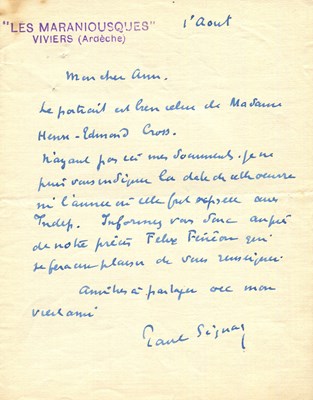 "LES MARANIOUSQUES"
VIVIERS (Ardèche)
1' Aout
Mon cher Ami.
Le portrait est bien celui de Madame
Henri-Edmond Cross.
N'ayant pas ici mes documents. je ne
puis vous indiquer la date de cette oeuvre
ni l'année où elle fut exposée aux
Indep. Informez vous donc auprès
de notre précis Felix Fénéon qui
se fera un plaisir de vous renseigner.
Amitiés à partager avec mon
vieil ami
Paul Signac